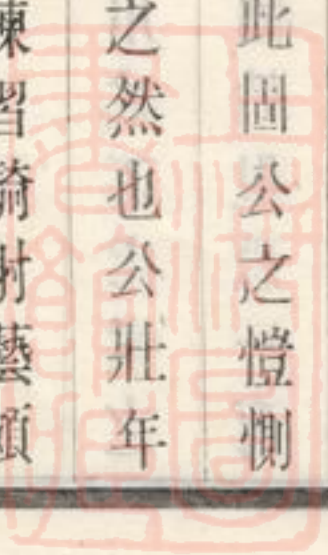 此固公之愷惻
之然也公壯年
練習騎射藝頗